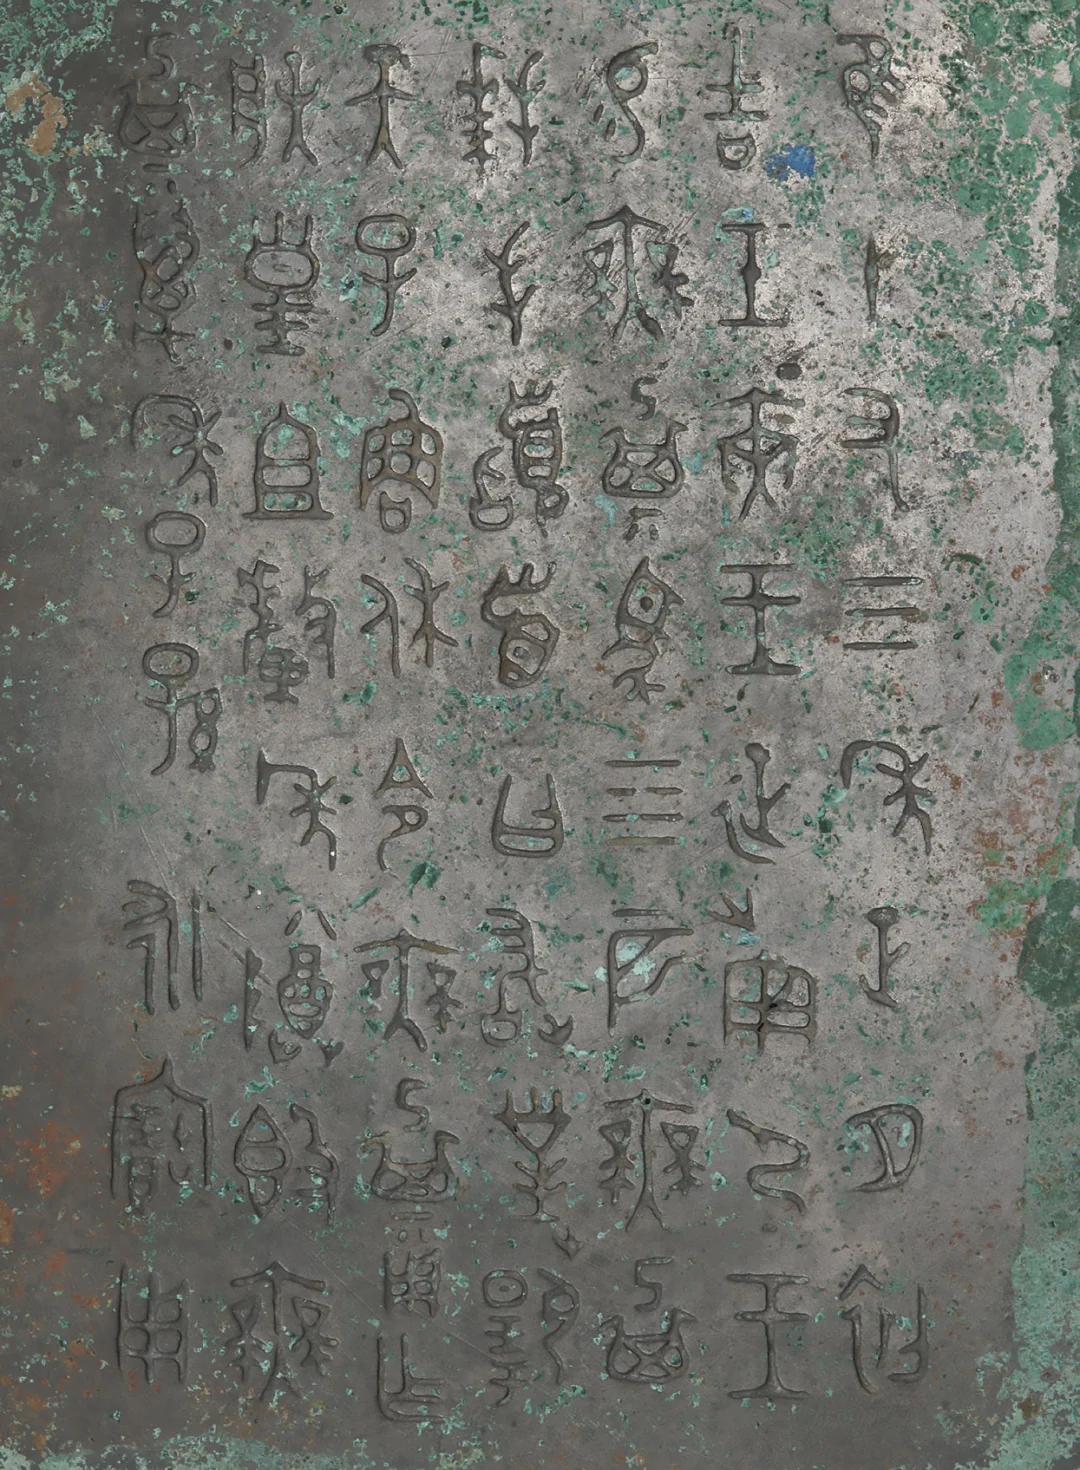 隹十又三年正月初
吉壬寅王征南夷王
易無㠱馬四匹無㠱
拜手稽首曰敢對揚
天子魯休令無㠱用乍
朕皇且釐季尊簋無
㠱萬年子孫永寶用